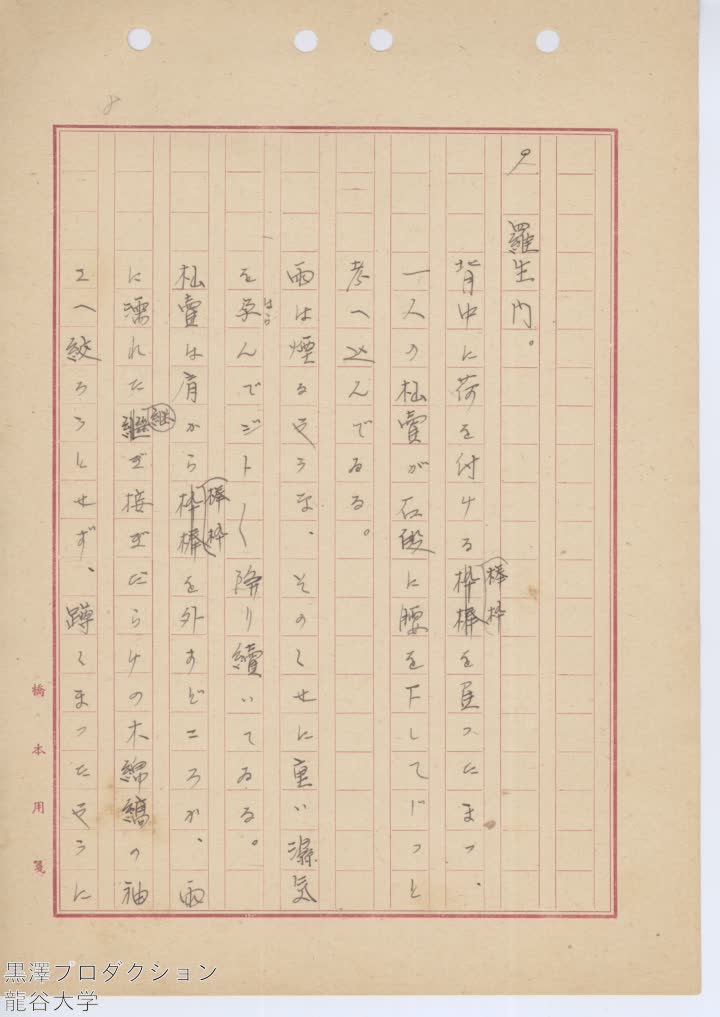 8
9 羅生門。
背中に荷を付ける枠棒を負つたまゝ、
棒枠
一人の杣賣が石段に腰を下してじつと
考へ込んでゐる。
雨は煙るやうな、そのくせに重い濕気
を孕んでジト〱降り續いてゐる。
はら
杣賣は肩から枠棒を外すどころか、雨
棒枠
に濡れた繼ぎ接ぎだらけの木綿縞の袖
継
さへ絞ろうとせず、蹲くまつたやうに
橋本用箋
黒澤プロダクション
龍谷大学